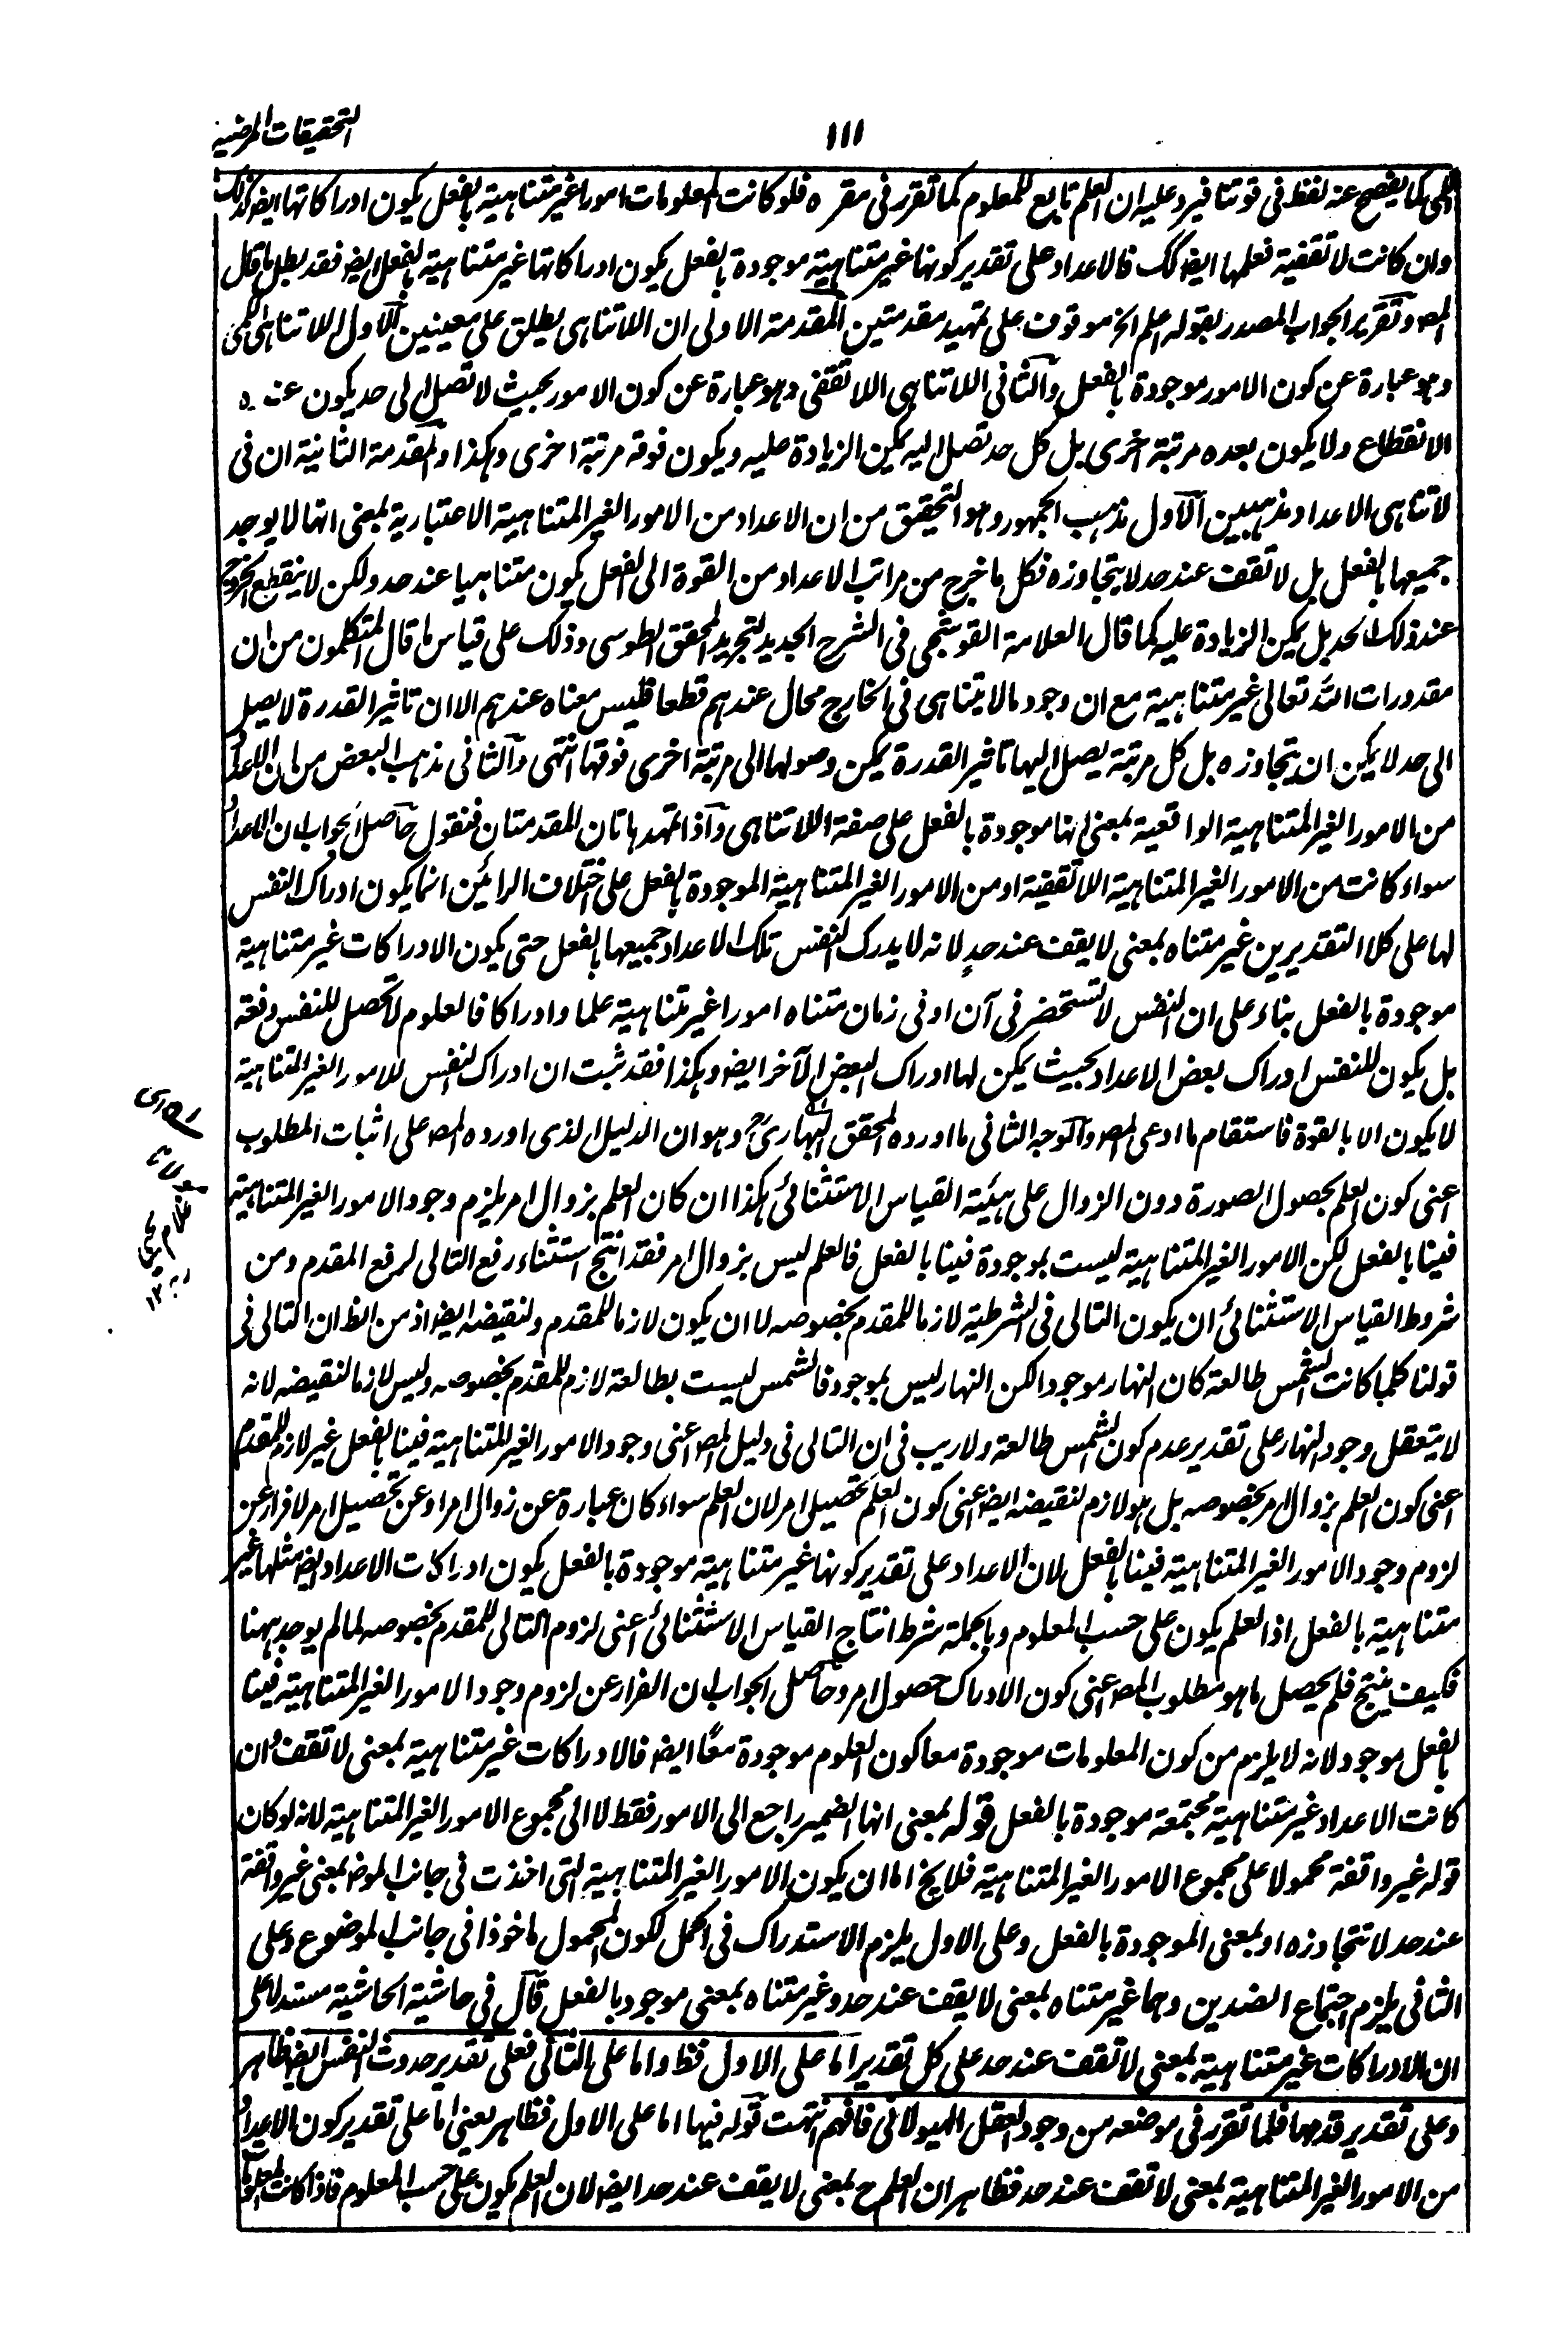 التحقيقات المرضية
١١١
كما يفصح عنه لفظ فى قوتنا فيرد عليه ان العلم تابع للمعلوم كما تقرر فى مقره فلو كانت المعلومات امورا غير متناهية بالفعل يكون ادراكاتها ايضا كذلك
وان كانت لا تقفية فعلمها ايضا كك فالاعداد على تقدير كونها غير متناهية موجودة بالفعل يكون ادراكاتها غير متناهية بالفعل ايضا فقد بطل ما قال
المص وتقرير الجواب المصدر بقوله اعلم الخ موقوف على تمهيد مقدمتين المقدمة الاولى ان اللاتناهى يطلق على معينين الاول اللاتناهى الكمى
وهو عبارة عن كون الامور موجودة بالفعل والثانى اللاتناهى اللاتقفى وهو عبارة عن كون الامور بحيث لا تصل الى حد يكون عنده
الانقطاع ولا يكون بعده مرتبة اخرى بل كل حد تصل اليه يمكن الزيادة عليه ويكون فوقه مرتبة اخرى وهكذا والمقدمة الثانية ان فى
لا تناهى الاعداد مذهبين الاول مذهب الجمهور وهو التحقيق من ان الاعداد من الامور الغير المتناهية الاعتبارية بمعنى انها لا يوجد
جميعها بالفعل بل لا تقف عند حد لا يتجاوزه فكل ما خرج من مراتب الاعداد من القوة الى الفعل يكون متناهيا عند حد ولكن لا ينقطع الخروج
عند ذلك الحد بل يمكن الزيادة عليه كما قال العلامة القوشجى فى الشرح الجديد لتجريد المحقق الطوسى وذلك على قياس ما قال المتكلمون من ان
مقدورات الله تعالى غير متناهية مع ان وجود ما لا يتناهى فى الخارج محال عندهم قطعا فليس معناه عندهم الا ان تاثير القدرة لا يصل
الى حد لا يمكن ان يتجاوزه بل كل مرتبة يصل اليها تاثير القدرة يمكن وصولها الى مرتبة اخرى فوقها انتهى والثانى مذهب البعض من ان الاعداد
من الامور الغير المتناهية الواقعية بمعنى انها موجودة بالفعل على صفة اللاتناهى واذا تمهد هاتان المقدمتان فنقول حاصل الجواب ان الاعداد
سواء كانت من الامور الغير المتناهية اللاتقفية او من الامور الغير المتناهية الموجودة بالفعل على اختلاف الرائين انما يكون ادراك النفس
لها على كلا التقديرين غير متناه بمعنى لا يقف عند حدٍ لانه لا يدرك النفس تلك الاعداد جميعها بالفعل حتى يكون الادراكات غير متناهية
موجودة بالفعل بناء على ان النفس لا تستحضر فى آن او فى زمان متناه امورا غير متناهية علما وادراكا فالعلوم لا تحصل للنفس دفعة
بل يكون للنفس ادراك بعض الاعداد بحيث يمكن لها ادراك البعض الآخر ايضا وهكذا فقد ثبت ان ادراك النفس للامور الغير المتناهية
لا يكون الا بالقوة فاستقام ما ادعى المص والوجه الثانى ما اورده المحقق البهارى وهو ان الدليل الذى اورده المص على اثبات المطلوب
اعنى كون العلم بحصول الصورة دون الزوال على هيئة القياس الاستثنائى هكذا ان كان العلم بزوال امر يلزم وجود الامور الغير المتناهية
فينا بالفعل لكن الامور الغير المتناهية ليست بموجودة فينا بالفعل فالعلم ليس بزوال امر فقد انتج استثناء رفع التالى لرفع المقدم ومن
شروط القياس الاستثنائى ان يكون التالى فى الشرطية لازما للمقدم بخصوصه لا ان يكون لازما للمقدم ولنقيضه ايضا اذ من الظ ان التالى فى
قولنا كلما كانت الشمس طالعة كان النهار موجودا لكن النهار ليس بموجود فالشمس ليست بطالعة لازم للمقدم بخصوصه وليس لازما لنقيضه لانه
لا يتعقل وجود النهار على تقدير عدم كون الشمس طالعة ولا ريب فى ان التالى فى دليل المص اعنى وجود الامور الغير المتناهية فينا بالفعل غير لازم للمقدم
اعنى كون العلم بزوال امر بخصوصه بل هو لازم لنقيضه ايضا اعنى كون العلم تحصيل امر لان العلم سواء كان عبارة عن زوال امر او عن تحصيل امر لا فرار عن
لزوم وجود الامور الغير المتناهية فينا بالفعل لان الاعداد على تقدير كونها غير متناهية موجودة بالفعل يكون ادراكات الاعداد ايضا مثلها غير
متناهية بالفعل اذ العلم يكون على حسب المعلوم وبالجملة شرط انتاج القياس الاستثنائى اعنى لزوم التالى للمقدم بخصوصه لما لم يوجد ههنا
فكيف ينتج فلم يحصل ما هو مطلوب المص اعنى كون الادراك حصول امر وحاصل الجواب ان الفرار عن لزوم وجود الامور الغير المتناهية فينا
بالفعل موجود لانه لا يلزم من كون المعلومات موجودة معا كون العلوم موجودة معًا ايضا فالادراكات غير متناهية بمعنى لا تقف وان
كانت الاعداد غير متناهية مجتمعة موجودة بالفعل قوله بمعنى انها الضمير راجع الى الامور فقط لا الى مجموع الامور الغير المتناهية لانه لو كان
قوله غير واقفة محمولا على مجموع الامور الغير المتناهية فلا يخ اما ان يكون الامور الغير المتناهية التى اخذت فى جانب الموضوع بمعنى غير واقفة
عند حد لا تتجاوزه او بمعنى الموجودة بالفعل وعلى الاول يلزم الاستدراك فى الحمل لكون المحمول ماخوذا فى جانب الموضوع وعلى
الثانى يلزم اجتماع الضدين وهما غير متناه بمعنى لا يقف عند حد وغير متناه بمعنى موجود بالفعل قال فى حاشية الحاشية مستدلا على
ان الادراكات غير متناهية بمعنى لا تقف عند حد على كل تقدير اما على الاول فظ واما على الثانى فعلى تقدير حدوث النفس ايضا ظاهر
وعلى تقدير قدمها فلما تقرر فى موضعه من وجود العقل الهيولانى فافهم انتهت قوله فيها اما على الاول فظاهر يعنى اما على تقدير كون الاعداد
من الامور الغير المتناهية بمعنى لا تقف عند حد فظاهر ان العلم ح بمعنى لا يقف عند حد ايضا لان العلم يكون على حسب المعلوم فاذا كانت المعلومات